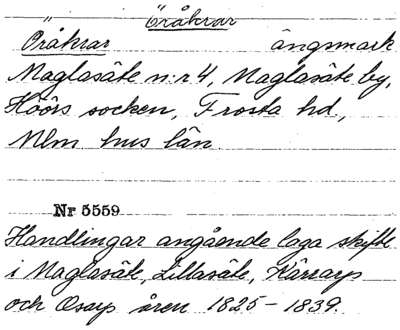 " Öråkrar
Oråkrar ängsmark
Maglasäte n:r 4, Maglasäte by,
Höörs socken, Frosta hd,
Mlm hus län.
Nr 5559
Handlingar angående laga skifte
i Maglasäte, Lillasäte, Kärrarp
och Osarp åren 1825-1839.